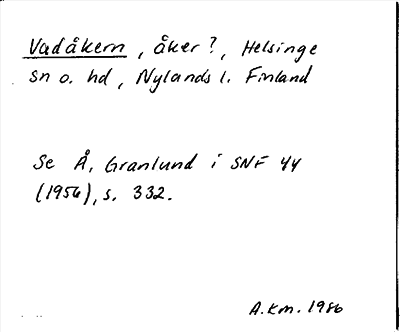 Vadåkern, åker?, Helsinge
sn o. hd, Nylands l. Finland
Se Å, Granlund i SNF 44
(1956), s. 332.
A.Km. 1986